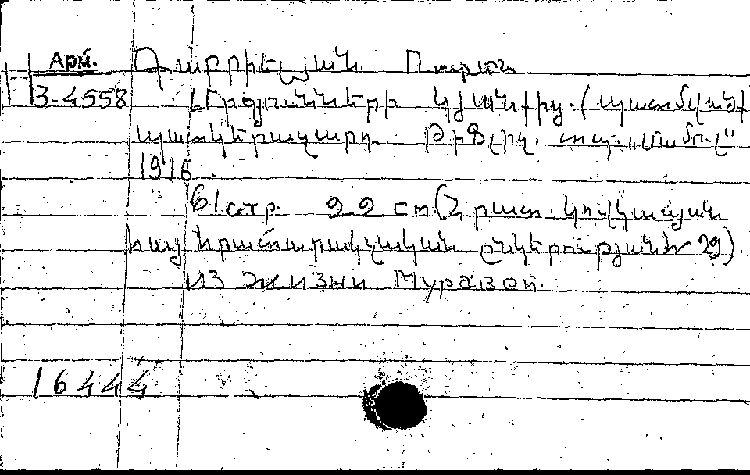 Арм. Գաբրիելյան
3-4558 Մրջյունների կյանքից. (պատմվածք
պատկերազարդ. Թիֆլիս. տպ.
1916
61 стр. 22 cm (Հրատ. կովկասյան
հայ հրատարակչական ընկերության № 29)
Из жизни Муравей.
16444